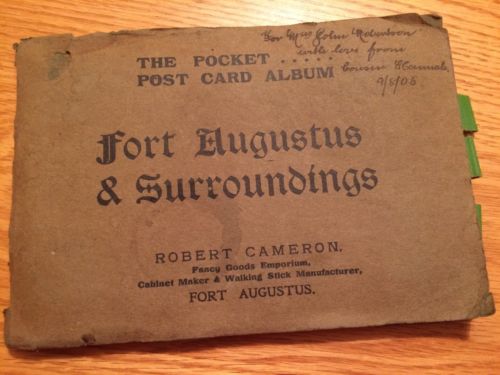 For Mrs John Robertson
with love from
Cousin
9/8/05
THE POCKET . . . . .
POST CARD ALBUM
Fort Augustus
& Surroundings
ROBERT CAMERON.
Fancy Goods Emporium,
Cabinet Maker & Walking Stick Manufacturer,
FORT AUGUSTUS.